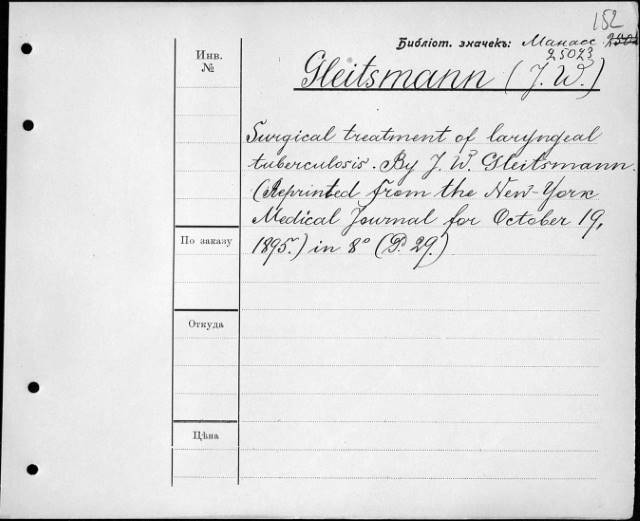 152
Библіот. значекъ: Манасс.
25023
Инв.
№
Gleitsmann (J. W.)
Surgical treatment of laryngeal
tuberculosis. By J. W. Gleitsmann.
(Reprinted from the New-York
Medical Journal for October 19,
1895.) in 8° (P. 29.)
По заказу
Откуда
Цѣна